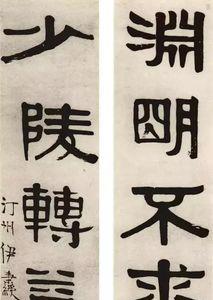 淵明不求
少陵轉
汀州伊